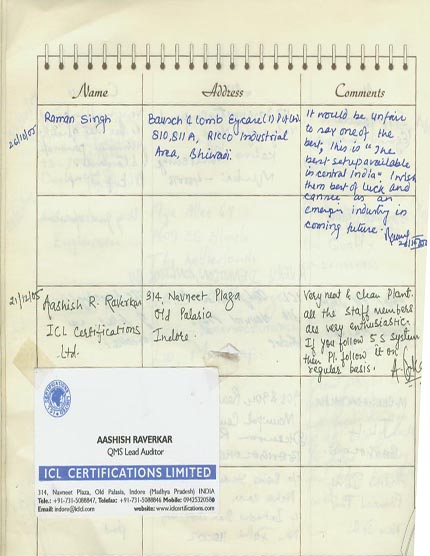 Name Address Comments
26/10/05
Raman Singh
Bausch & Lomb Eyecare (I) Pvt Ltd.
S10, S11 A, RICCO Industrial
Area, Bhiwadi.
It would be unfair
to say one of the
best, This is "The
best setup available
in central India" I wish
them best of luck and
as an
industry in
coming future.
21/12/05
Aashish R. Raverkar
ICL Certifications
Ltd.
314, Navneet Plaza
Old Palasia
Indore.
Very neat & clean Plant.
all the staff members
are very enthusiastic.
If you follow 5 S system
then Pl. follow it on
regular basis.
AASHISH RAVERKAR
QMS Lead Auditor
ICL CERTIFICATIONS LIMITED
314, Navneet Plaza, Old Palasia, Indore (Madhya Pradesh) INDIA
Tele.: +91-731-5088847, Telefax: +91-731-5088846 Mobile: 09425320550
Email: indore@iclcl.com website: www.iclcertifications.com